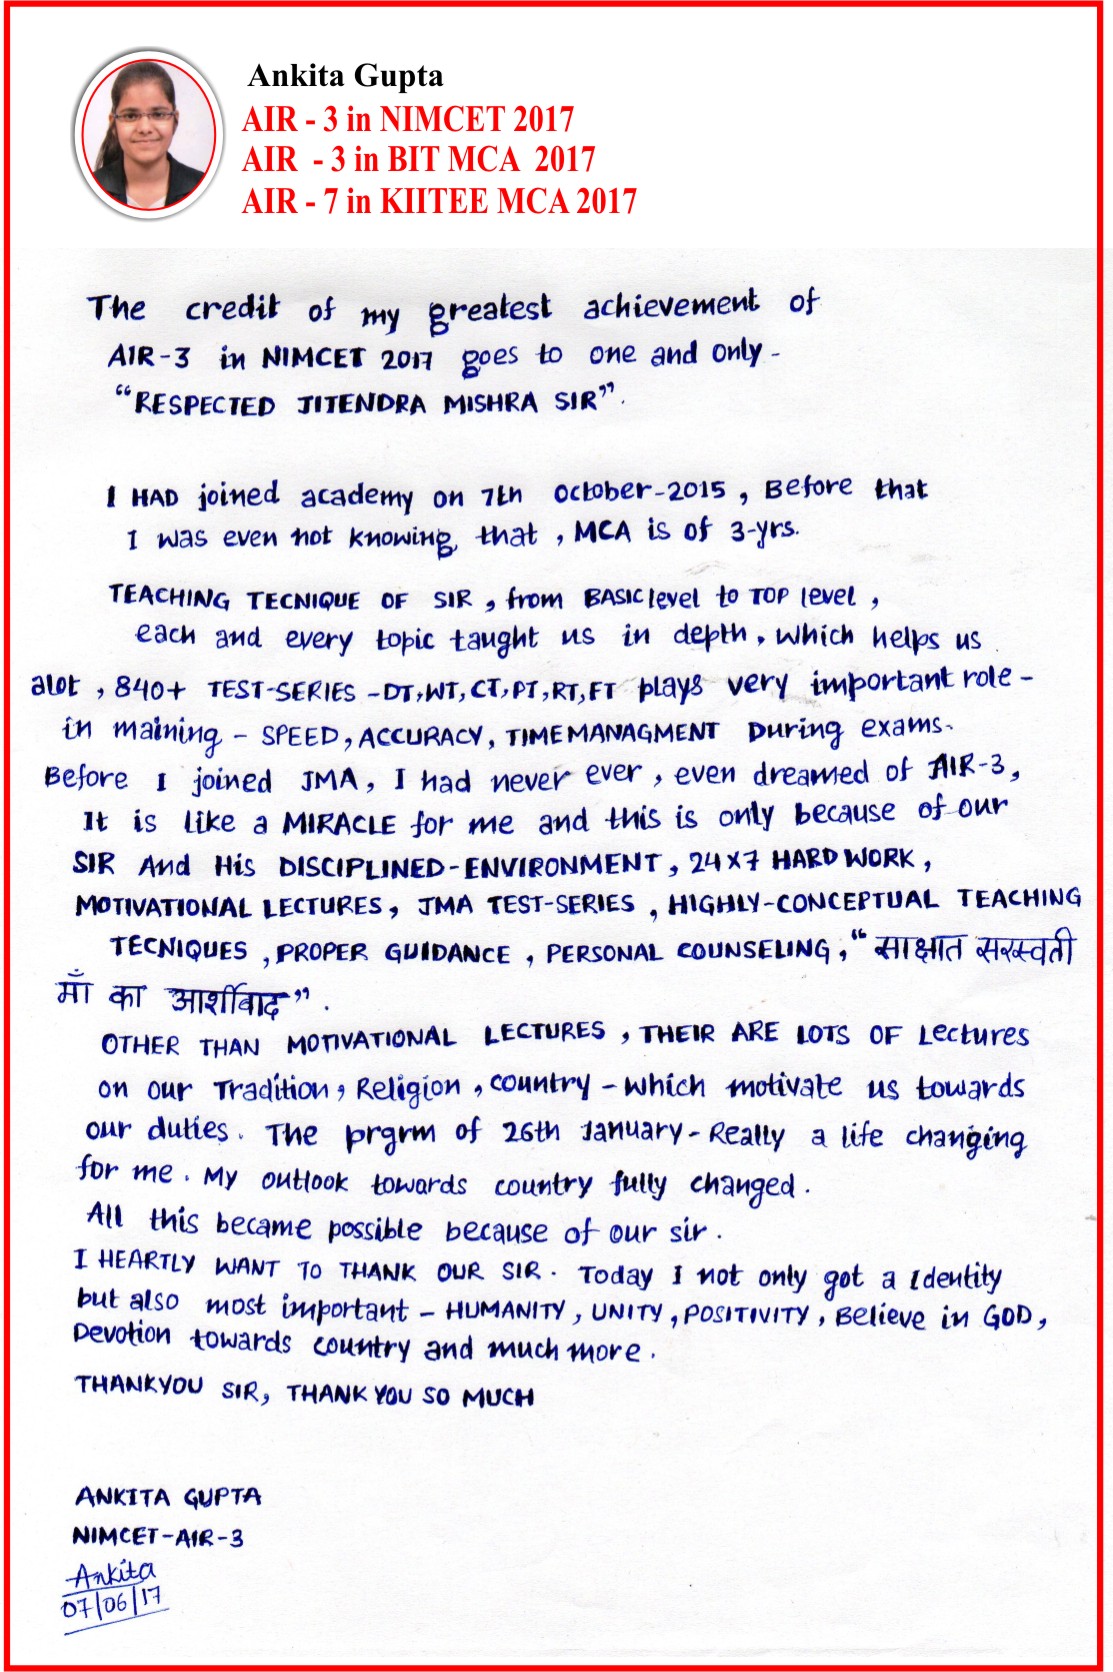 Ankita Gupta
AIR - 3 in NIMCET 2017
AIR - 3 in BIT MCA 2017
AIR - 7 in KIITEE MCA 2017
The credit of my greatest achievement of
AIR-3 in NIMCET 2017 goes to one and only -
"RESPECTED JITENDRA MISHRA SIR".
I HAD joined academy on 7th october-2015, Before that
I was even not knowing, that, MCA is of 3-yrs.
TEACHING TECNIQUE OF SIR, from BASIC level to TOP level,
each and every topic taught us in depth, which helps us
alot, 840+ TEST-SERIES -DT,WT,CT,PT,RT,FT plays very important role -
in maining - SPEED, ACCURACY, TIME MANAGMENT During exams.
Before I joined JMA, I had never ever, even dreamed of AIR-3,
It is like a MIRACLE for me and this is only because of our
SIR And His DISCIPLINED-ENVIRONMENT, 24x7 HARD WORK,
MOTIVATIONAL LECTURES, JMA TEST-SERIES, HIGHLY-CONCEPTUAL TEACHING
TECNIQUES, PROPER GUIDANCE, PERSONAL COUNSELING, "साक्षात सरस्वती
माँ का आर्शीवाद".
OTHER THAN MOTIVATIONAL LECTURES, THEIR ARE LOTS OF Lectures
on our Tradition, Religion, country - which motivate us towards
our duties. The prgrm of 26th January - Really a life changing
for me. My outlook towards country fully changed.
All this became possible because of our sir.
I HEARTLY WANT TO THANK OUR SIR. Today I not only got a Identity
but also most important - HUMANITY, UNITY, POSITIVITY, Believe in GOD,
Devotion towards country and much more.
THANKYOU SIR, THANK YOU SO MUCH
ANKITA GUPTA
NIMCET-AIR-3
Ankita
07/06/17